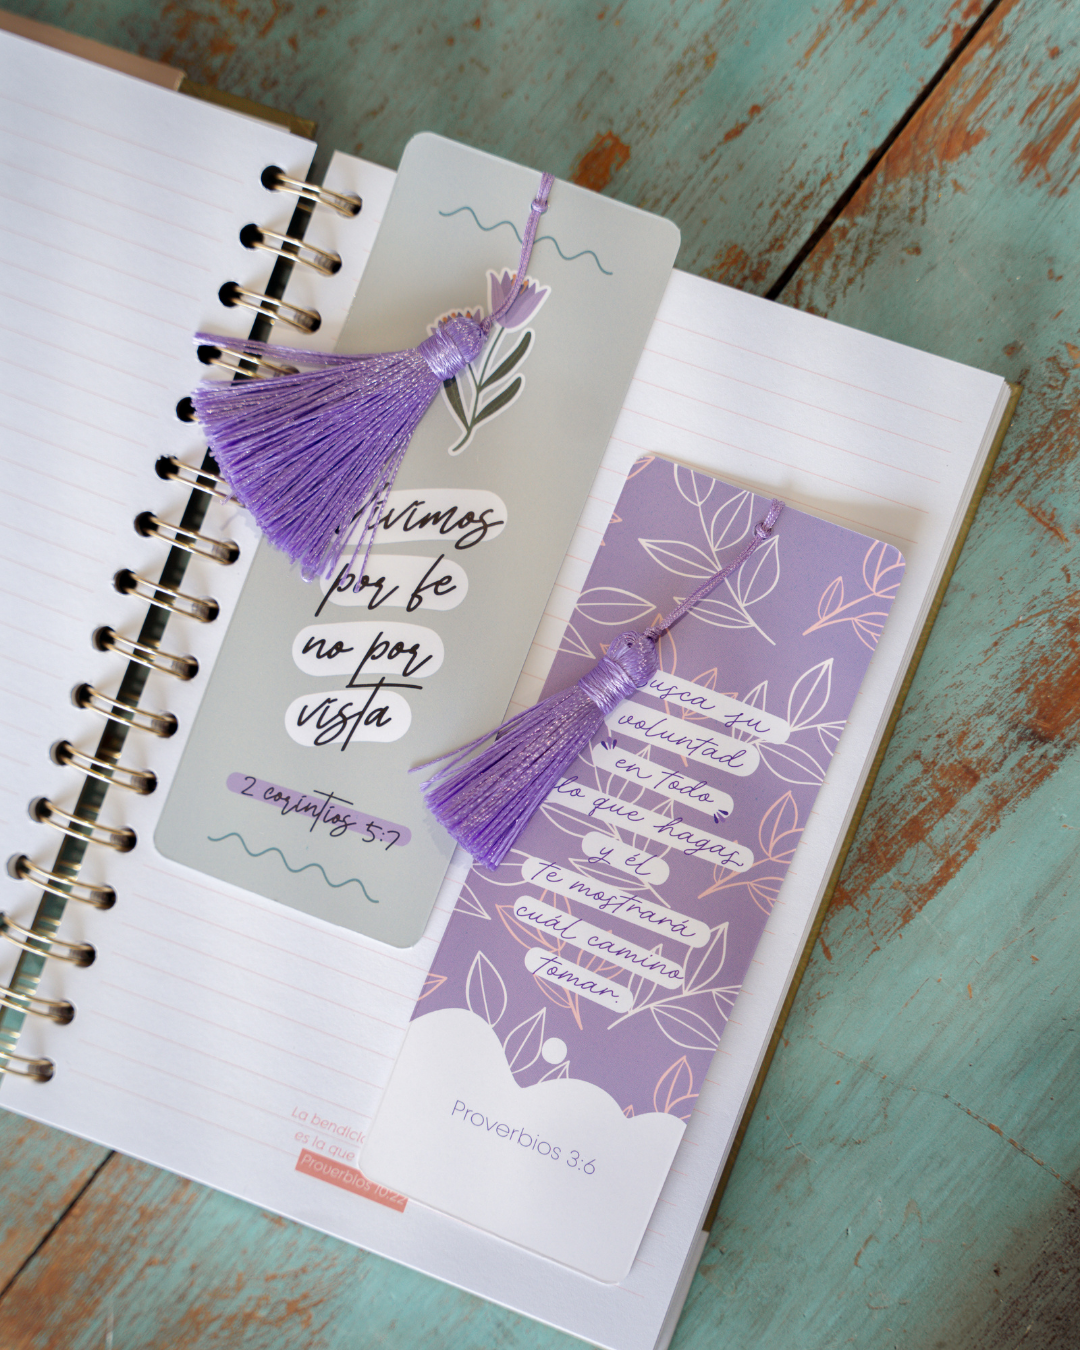 vivimos
por fe
no por
vista
2 coríntios 5:7
busca su
voluntad
en todo
lo que hagas
y él
te mostrará
cuál camino
tomar.
Proverbios 3:6
La
es la que
Proverbios 10:22